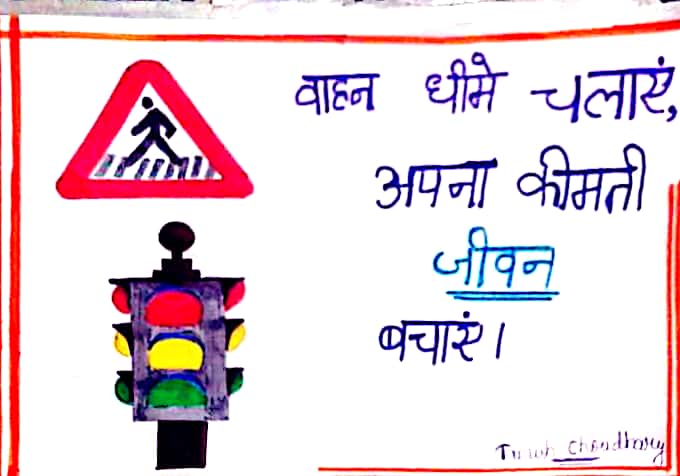 वाहन धीमे चलाएं,
अपना कीमती
जीवन
बचाएं।
Chaudhary